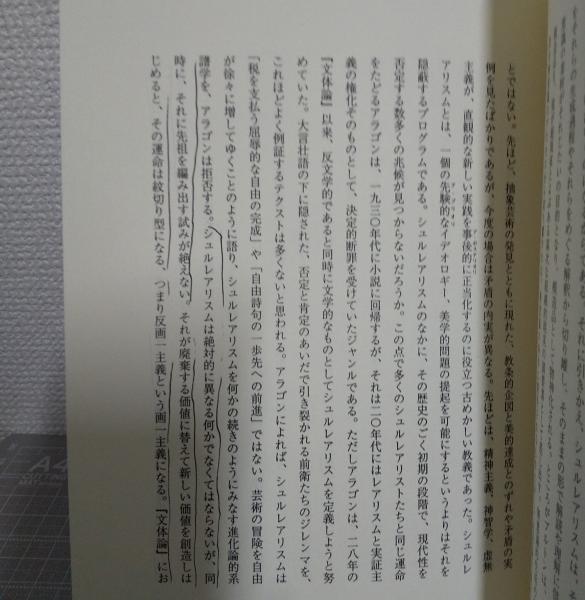 とではない。先ほど、抽象芸術の発見とともに現れた、教条的企図と美的達成とのずれや矛盾の実
例を見たばかりであるが、今度の場合は矛盾の内実が異なる。先ほどは、精神主義、神智学、虚無
主義が、直観的な新しい実践を事後的に正当化するのに役立つ古めかしい教義であった。シュルレ
アリスムとは、一個の先験的なイデオロギー、美学的問題の提起を可能にするというよりはそれを
隠蔽するプログラムである。シュルレアリスムのなかに、その歴史のごく初期の段階で、現代性を
否定する数多くの兆候が見つからないだろうか。この点で多くのシュルレアリストたちと同じ運命
をたどるアラゴンは、一九三〇年代に小説に回帰するが、それは二〇年代にはレアリスムと実証主
義の権化そのものとして、決定的断罪を受けていたジャンルである。ただしアラゴンは、二八年の
『文体論』以来、反文学的であると同時に文学的なものとしてシュルレアリスムを定義しようと努
めていた。大言壮語の下に隠された、否定と肯定のあいだで引き裂かれる前衛たちのジレンマを、
これほどよく例証するテクストは多くないと思われる。アラゴンによれば、シュルレアリスムは
「税を支払う屈辱的な自由の完成」や「自由詩句の一歩先への前進」ではない。芸術の冒険を自由
が徐々に増してゆくことのように語り、シュルレアリスムを何かの続きのようにみなす進化論的系
譜学を、アラゴンは拒否する。シュルレアリスムは絶対的に異なる何かでなくてはならないが、同
時に、それに先祖を編み出す試みが絶えない。それが廃棄する価値に替えて新しい価値を創造しは
じめると、その運命は紋切り型になる、つまり反画一主義という画一主義になる。『文体論』にお
A4